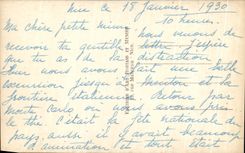 Nice ce 18 Janvier 1930
10 heures.
Ma chère petite mimi
Nous venons de
recevoir ta gentille
lettre. J'espère
que tu as de la
distraction.
Hier nous avons fait une belle
excursion jusqu'à Menton et la
frontière italienne. Retour par
Monte Carlo où nous avons pris
le thé. C'était la fête nationale du
pays, aussi il y avait beaucoup
d'animation et tout était